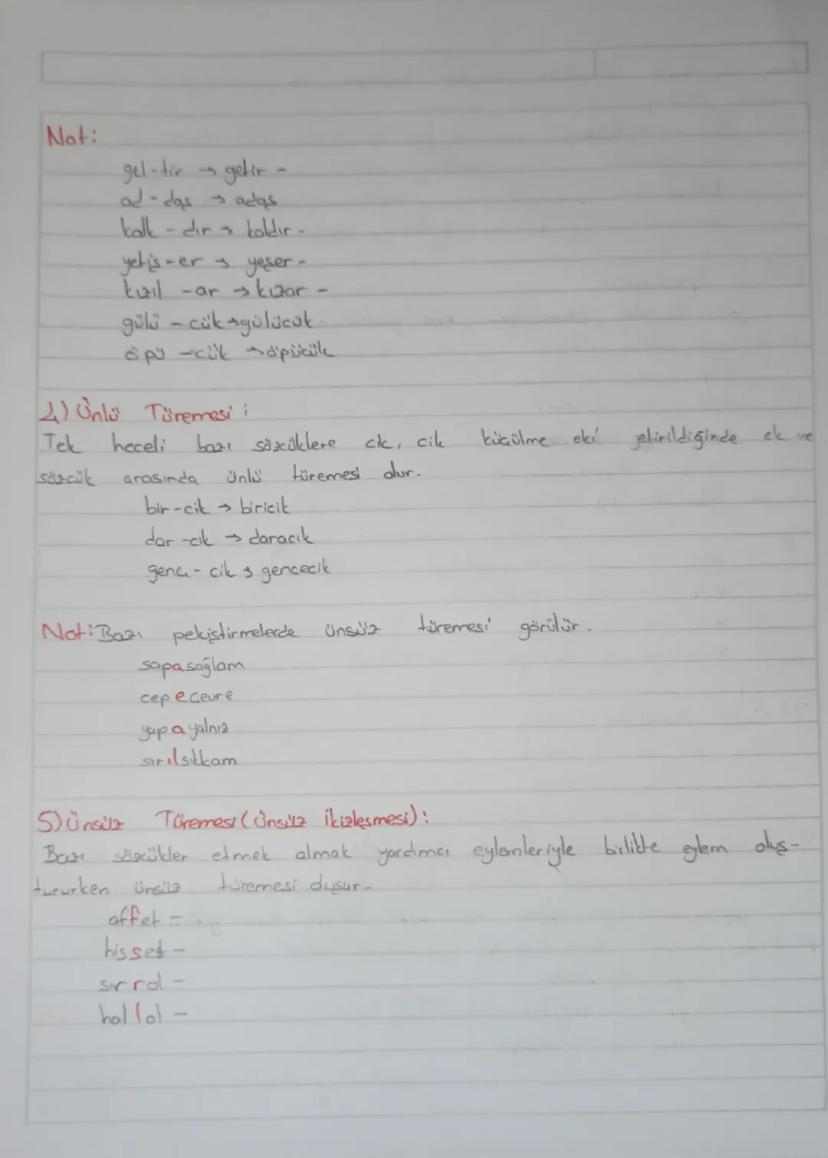 Not:
gel-tir → getir -
ad - daş → adaş
kalk - dır → kaldır -
yeşil - er → yeşer -
kızıl - ar → kızar -
gülü - cük → gülücük
öpü - cük → öpücük
4) Ünlü Türemesi:
Tek heceli bazı sözcüklere cık, cik küçülme eki getirildiğinde ek ve
sözcük arasında ünlü türemesi olur.
bir-cik → biricik
dar-cık → daracık
genç - cik → gencecik
Not: Bazı pekiştirmelerde ünsüz türemesi görülür.
sapasağlam
cepeçevre
yapayalnız
sırılsıklam
5) Ünsüz Türemesi (Ünsüz İkizleşmesi):
Bazı sözcükler etmek olmak yardımcı eylemleriyle birlikte eylem oluş-
tururken ünsüz türemesi oluşur.
affet - ...
hisset -
sırrol -
hallol -